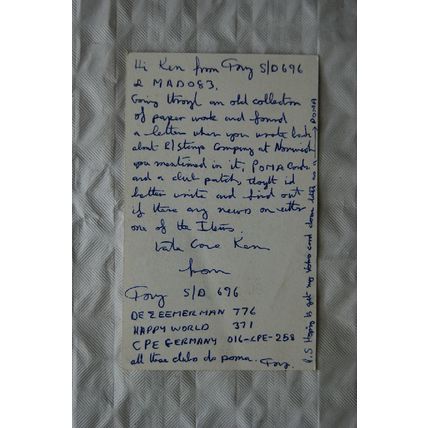 Hi Ken from Tony S/D 696
& MAD083.
Going through an old collection
of paper work and found
a letter when you wrote back
about R/Stamp Company at Norwich
you mentioned in it, POMA Cards
and a club patch, thought id
better write and find out
if there any news on either
one of the Items.
take Care Ken
from
Tony S/D 696
DE ZEEMERMAN 776
HAPPY WORLD 371
CPE GERMANY 016-CPE-258
all these clubs do poma. Tony.
P.S Hoping to get my card as a POMA